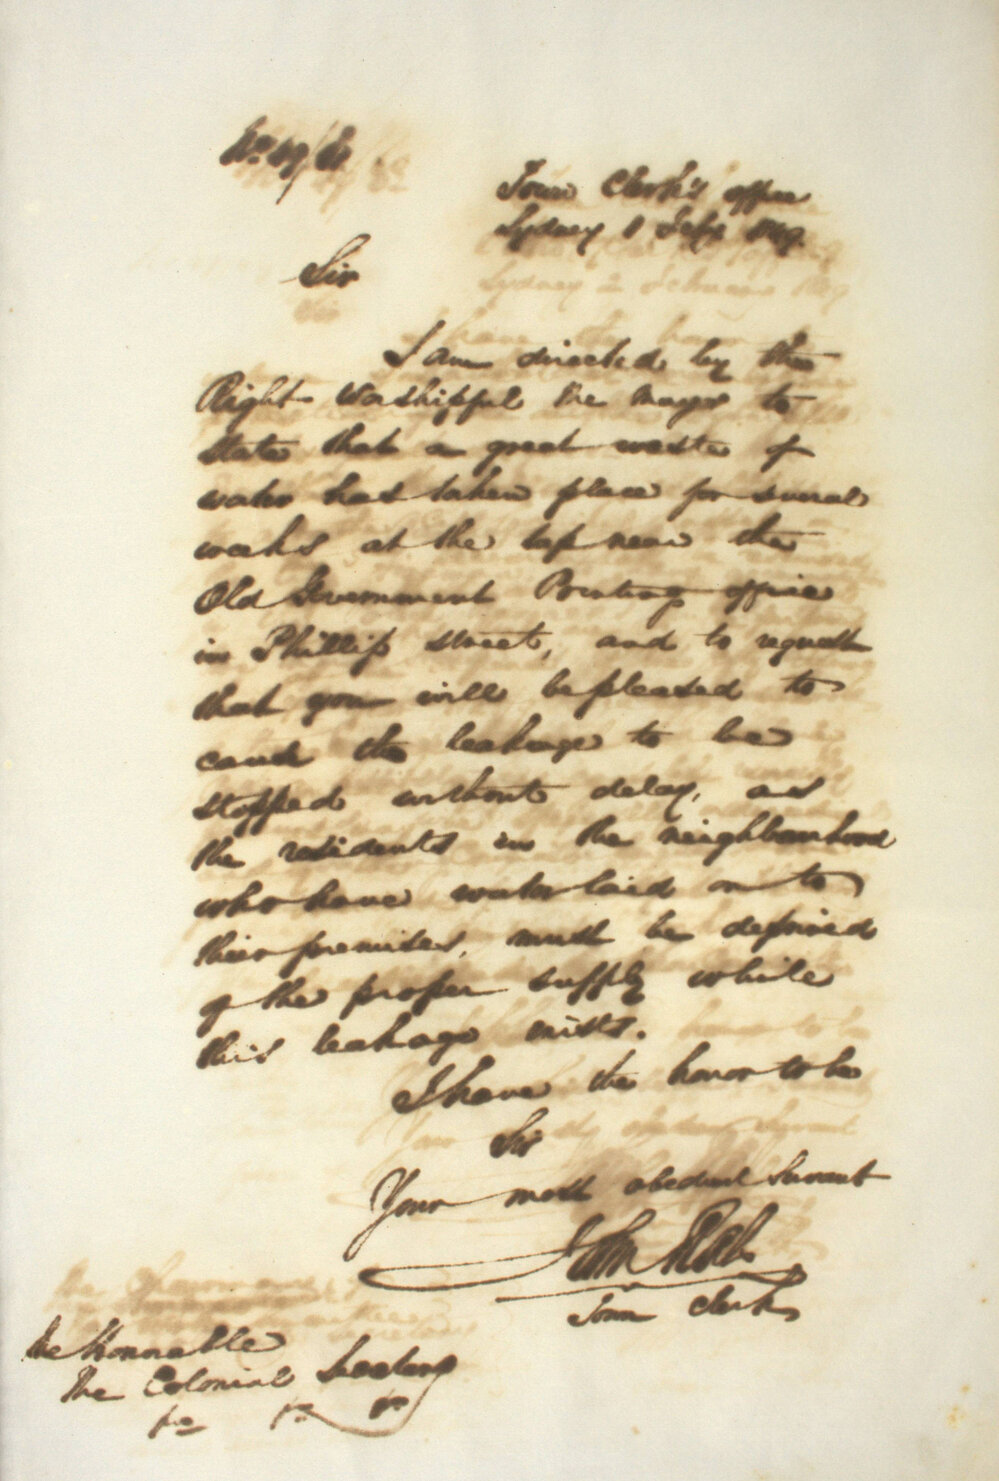 Town Clerk's office
Sydney 1 Sept 1849.
Sir
I am directed by the
Right Worshipful the Mayor to
state that a great waste of
water has taken place for several
weeks at the tap near the
Old Government Printing office
in Phillip street, and to request
that you will be pleased to
cause the leakage to be
stopped without delay, as
the residents in the neighbourhood
who have water laid on to
their premises, must be deprived
of the proper supply while
this leakage exists.
I have the honor to be
Sir
Your most obedient Servant
John Rae
Town Clerk
The Honorable
The Colonial Secretary